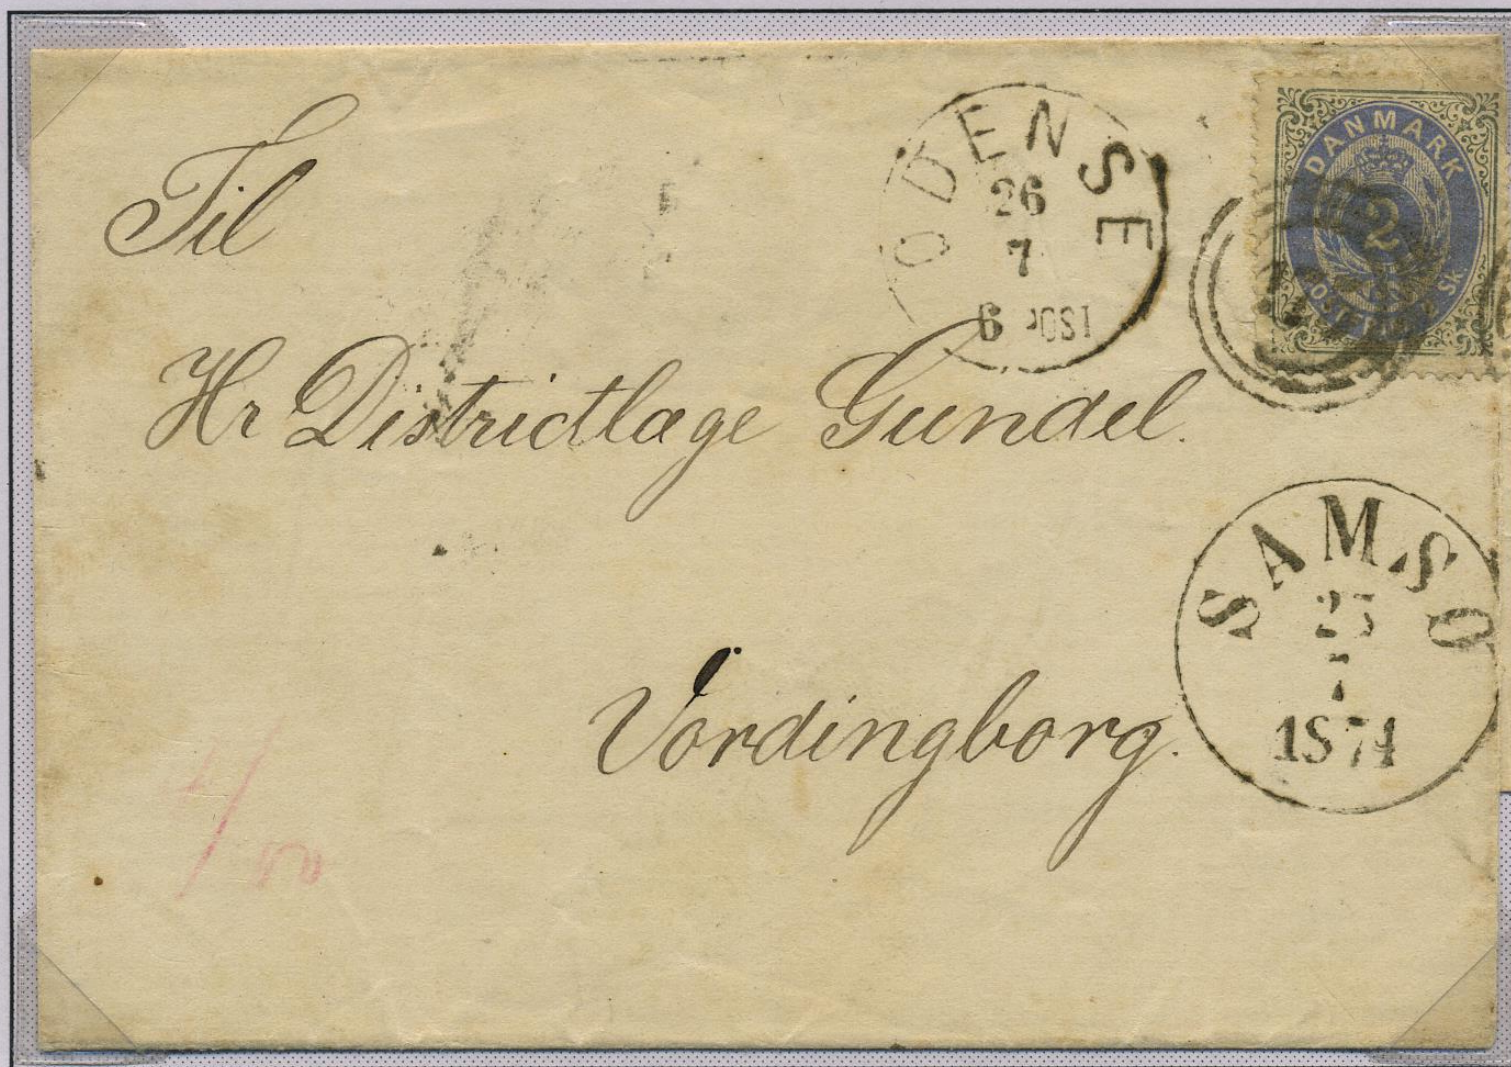 Til
Hr Districtlæge Gundel.
Vordingborg.
ODENSE
26
7
6 POST
DANMARK
2
SK
SAMSØ
25
7
1871